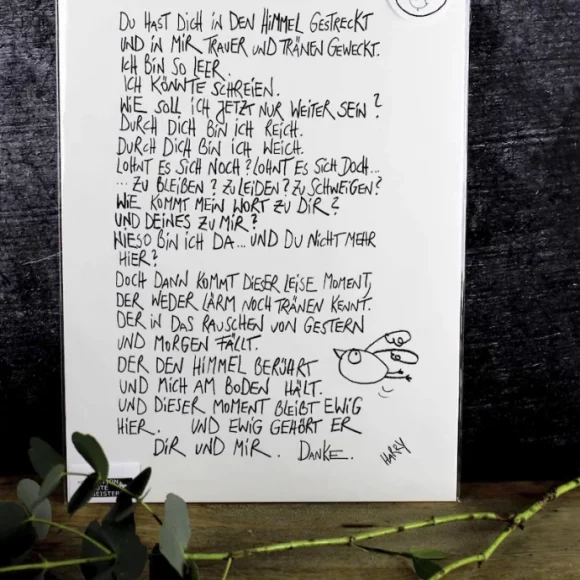 Du hast dich in den Himmel gestreckt
und in mir Trauer und Tränen geweckt.
Ich bin so leer.
Ich könnte schreien.
Wie soll ich jetzt nur weiter sein?
Durch dich bin ich reich.
Durch dich bin ich weich.
Lohnt es sich noch? Lohnt es sich doch...
... zu bleiben? Zu leiden? Zu schweigen?
Wie kommt mein Wort zu dir?
Und deines zu mir?
Wieso bin ich da... und du nicht mehr
hier?
Doch dann kommt dieser leise Moment,
der weder Lärm noch Tränen kennt.
Der in das Rauschen von gestern
und morgen fällt.
Der den Himmel berührt
und mich am Boden hält.
Und dieser Moment bleibt ewig
hier. Und ewig gehört er
dir und mir. Danke.
Harry